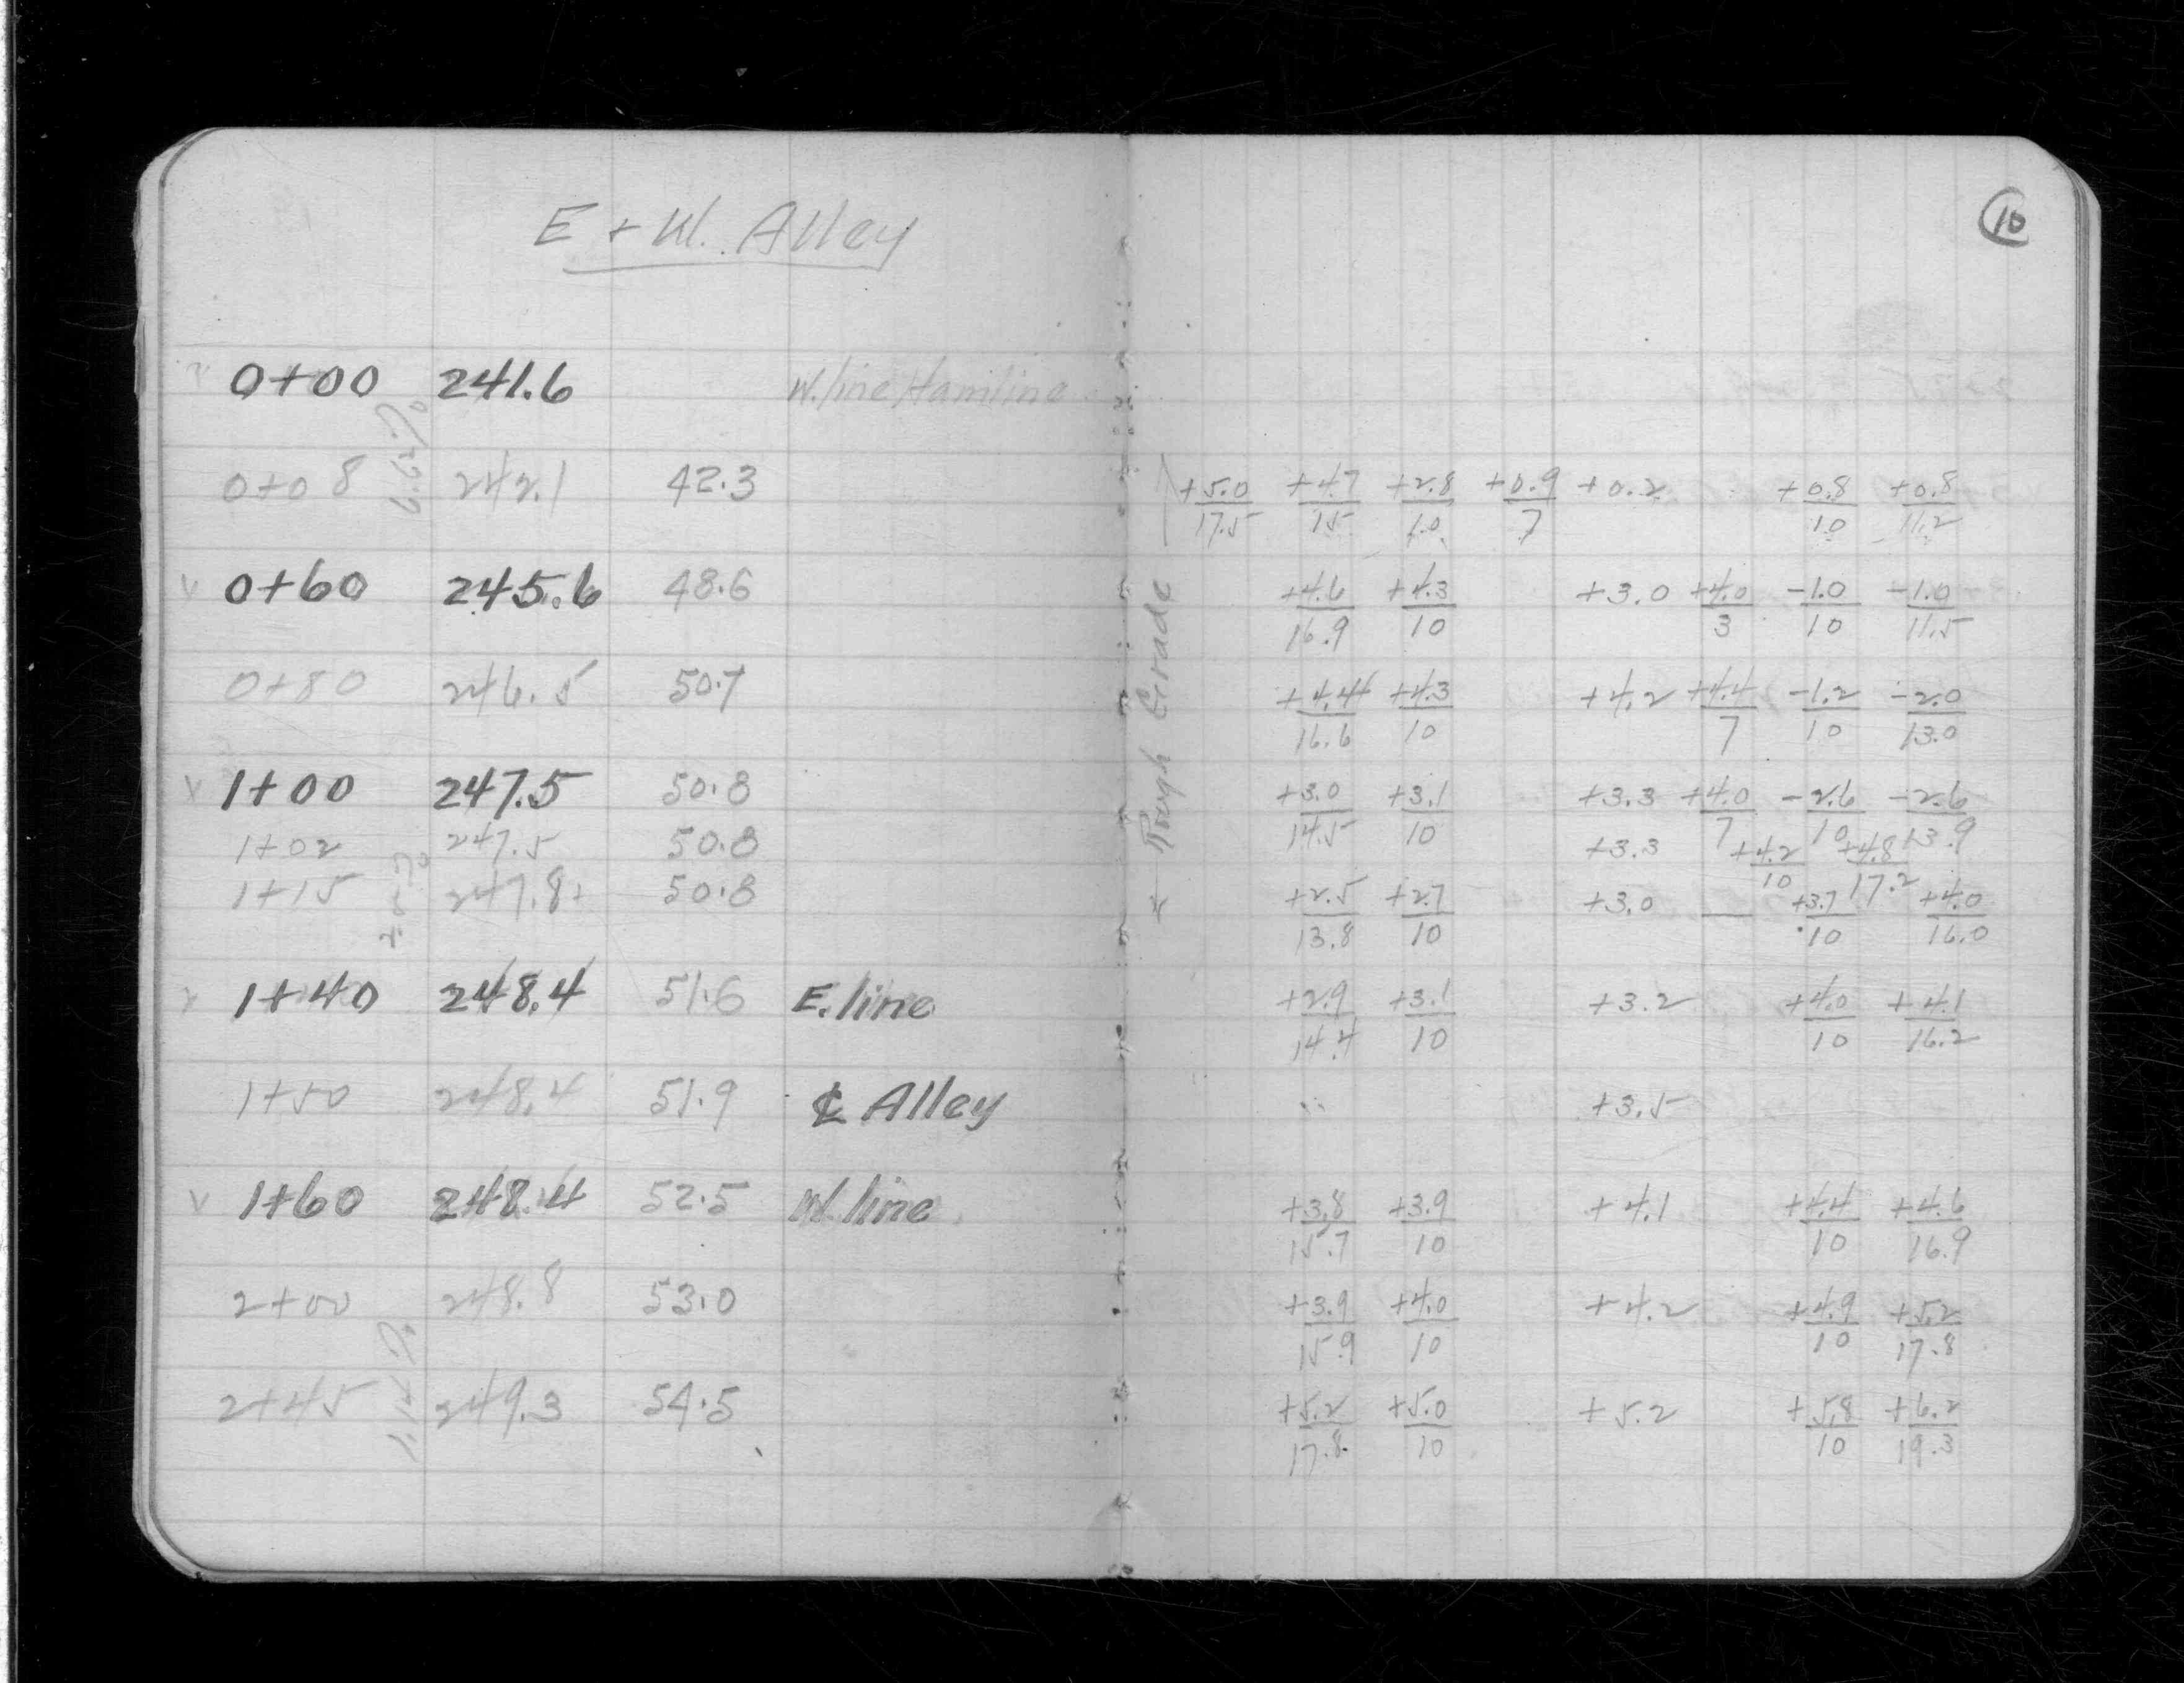 E + W. Alley
10
0+00 241.6 W. line Hamline
6.67%
0+08 242.1 42.3 +5.0/17.5 +4.7/15 +2.8/10 +0.9/7 +0.2 +0.8/10 +0.8/11.2
v 0+60 245.6 48.6 +4.6/16.9 +4.3/10 +3.0 +4.0/3 -1.0/10 -1.0/11.5
0+80 246.5 50.7 +4.4/16.6 +4.3/10 +4.2 +4.4/7 -1.2/10 -2.0/13.0
Rough Grade
v 1+00 247.5 50.8 +3.0/14.5 +3.1/10 +3.3 +4.0/7 -2.6/10 -2.6/13.9
1+02 247.5 50.8 +3.3 +4.2/10 +4.8/17.2
1+15 247.8+ 50.8 +2.5/13.8 +2.7/10 +3.0 — +3.7/10 +4.0/16.0
v 1+40 248.4 51.6 E. line +2.9/14.4 +3.1/10 +3.2 +4.0/10 +4.1/16.2
1+50 248.4 51.9 ℄ Alley +3.5
v 1+60 248.4 52.5 W. line +3.8/15.7 +3.9/10 +4.1 +4.4/10 +4.6/16.9
2+00 248.8 53.0 +3.9/15.9 +4.0/10 +4.2 +4.9/10 +5.2/17.8
2+45 249.3 54.5 +5.2/17.8 +5.0/10 +5.2 +5.8/10 +6.2/19.3